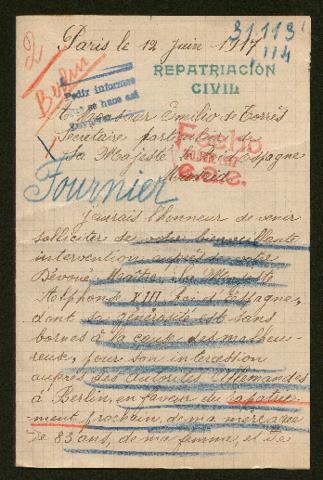 2
Paris le 12 Juin 1917
31113
114
REPATRIACIÓN
CIVIL
Berlin
Pedir informes
Monsieur Emilio de Torrès
Secrétaire particulier de
Sa Majesté le Roi d'Espagne
Madrid
Fecho
Fournier
J'aurais l'honneur de venir
solliciter de votre bienveillante
intervention auprès de votre
Dévoué Maître, Sa Majesté
Alphonse XIII Roi d'Espagne,
dont la générosité est sans
bornes à la cause des malheu-
reux, pour son intercession
auprès des autorités Allemandes
à Berlin, en faveur du rapatrie-
ment prochain de ma mère âgée
de 83 ans, de ma femme, et de